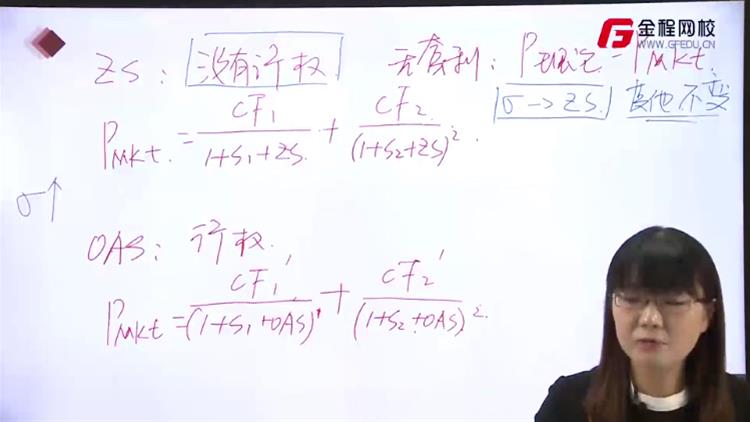 金程网校
WWW.GFEDU.CN
ZS: 没有行权 无套利: P理论 = PMKt.
σ → ZS. 其他不变
PMKt. = CF1 / 1+S1+ZS. + CF2. / (1+S2+ZS)²
σ↑
OAS: 行权.
PMKt = CF1' / (1+S1+OAS)¹ + CF2' / (1+S2+OAS)².